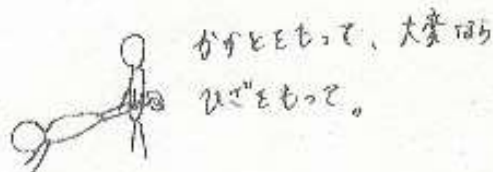 かかとをもって、大変なら
ひざをもって。